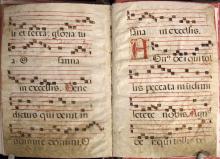 li et terra gloria tu
a. O sanna
in excelsis. Bene
dictus qui venit in
nomine domini. O
sana in excelsis.
dei qui tol
lis peccata mundi mi
serere nobis. Agn
dei qui tollis